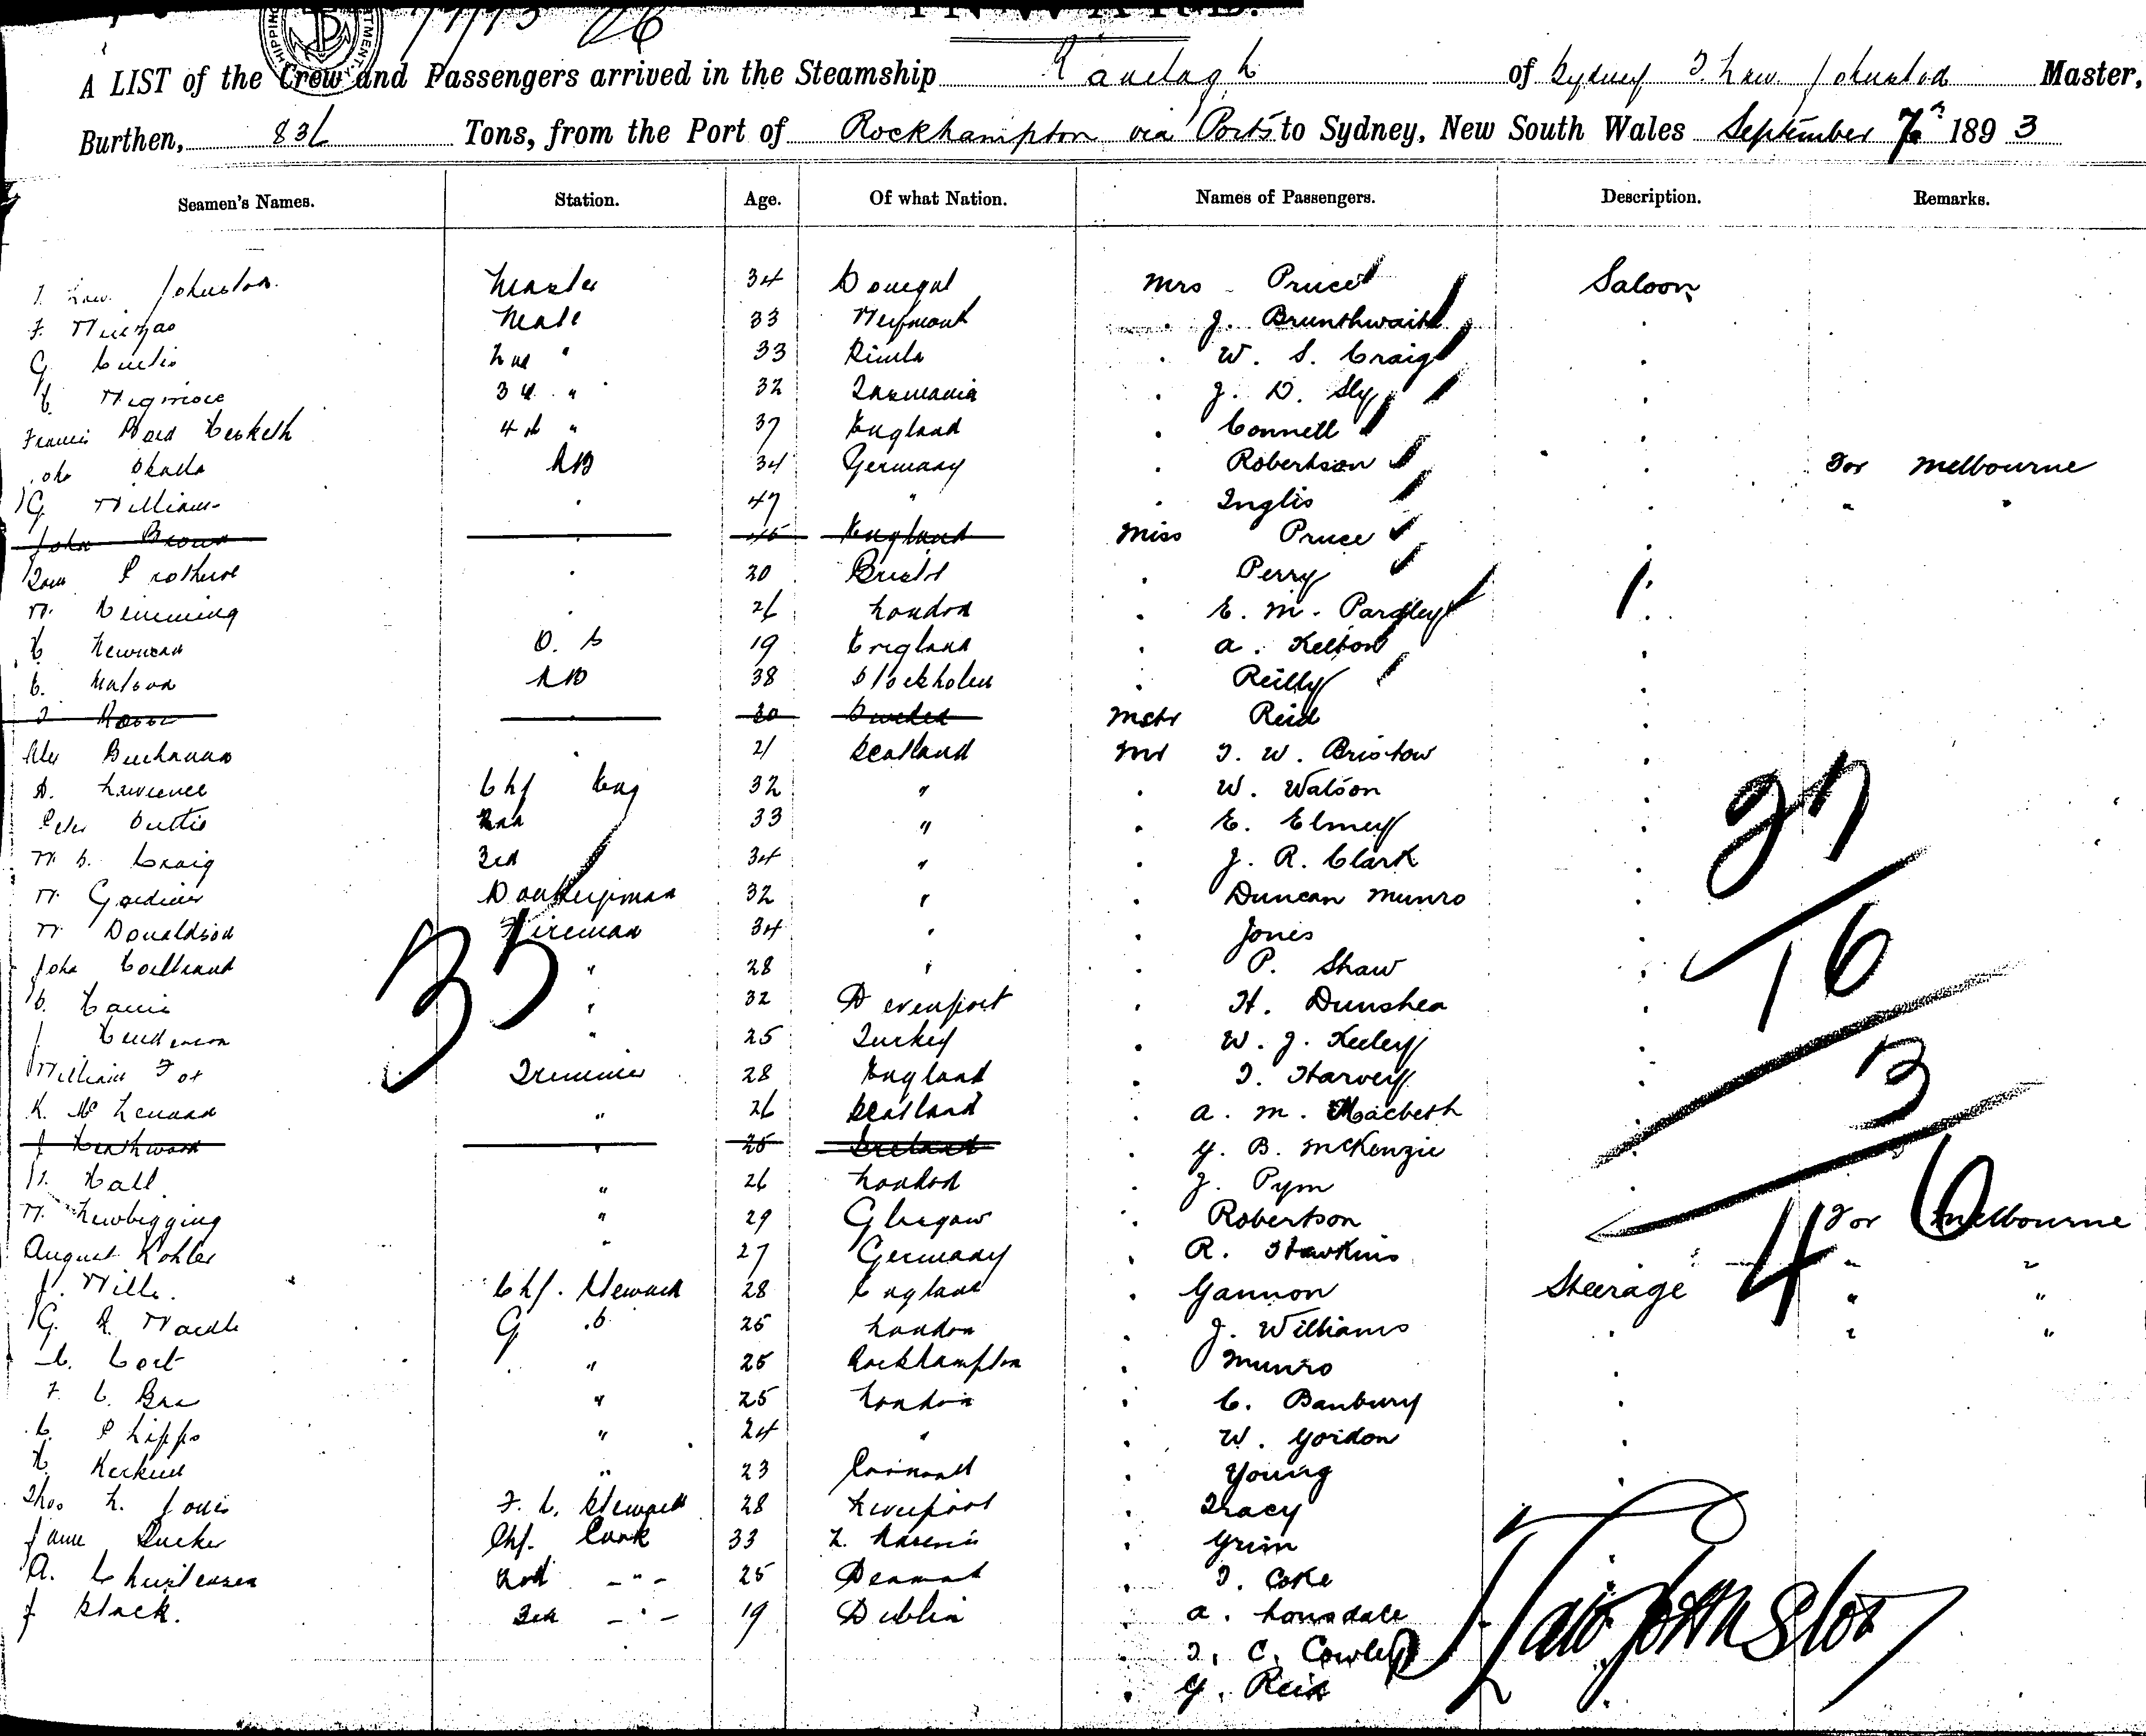 INWARD.
A LIST of the Crew and Passengers arrived in the Steamship Ranelagh of Sydney T. Law. Johnston Master,
Burthen, 836 Tons, from the Port of Rockhampton via Ports to Sydney, New South Wales September 7th 1893
Seamen's Names. Station. Age. Of what Nation. Names of Passengers. Description. Remarks.
T. Law. Johnston Master 34 Donegal Mrs Pruce Saloon
F. Mate 33 Weymouth J. Brunthwaite
G. Curtis 2nd " 33 W. S. Craig
3rd " 32 Tasmania J. D. Sly
Francis Hesketh 4th " 37 England Connell
AB 34 Germany Robertson For Melbourne
G William 47 " Inglis " "
John Brown 45 England Miss Pruce
Tom Protheroe 20 Bristol Perry
W. Hemming 26 London E. M. Pargley
H Newman O. S 19 England A. Kelton
C. Watson AB 38 Stockholm Reilly
20 Sweden Mstr Reid
Alex Buchanan 21 Scotland Mr T. W. Bristow
D. Lawrence Chf Eng 32 " W. Watson
Peter 2nd 33 " E. Elmey
W. S. Craig 3rd 34 " J. R. Clark
W. Gardiner Donkeyman 32 " Duncan Munro
W Donaldson Fireman 34 " Jones
John " 28 " P. Shaw
" 32 Devenport H. Dunshea
J Henderson " 25 Turkey W. J. Keeley
William Fox Trimmer 28 England T. Harvey
K. McLennan " 26 Scotland A. M. Macbeth
J Heathwood " 25 Ireland G. B. McKenzie
Hall " 26 London J. Pym
W. Newbigging " 29 Glasgow Robertson For Melbourne
August Kohler " 27 Germany R. Hawkins " "
J. Wills. Chf. Steward 28 England Gannon Steerage " "
G. R. Wardle G .S 25 London J. Williams " "
C. Cort " 25 Rockhampton Munro
F. C. " 25 London C. Banbury
C. Phipps " 24 " W. Gordon
H. " 23 Cornwall Young
Thos L. Jones F. C. Steward 28 Liverpool Tracy
Jame Tucker Chf. Cook 33 Grim
A. Christensen 2nd -"- 25 Denmark T. Coke
J Black. 3rd -"- 19 Dublin A. Lonsdale
T. C. Cowley
G. Reid
35
27
16
3
6
4
T Law Johnston